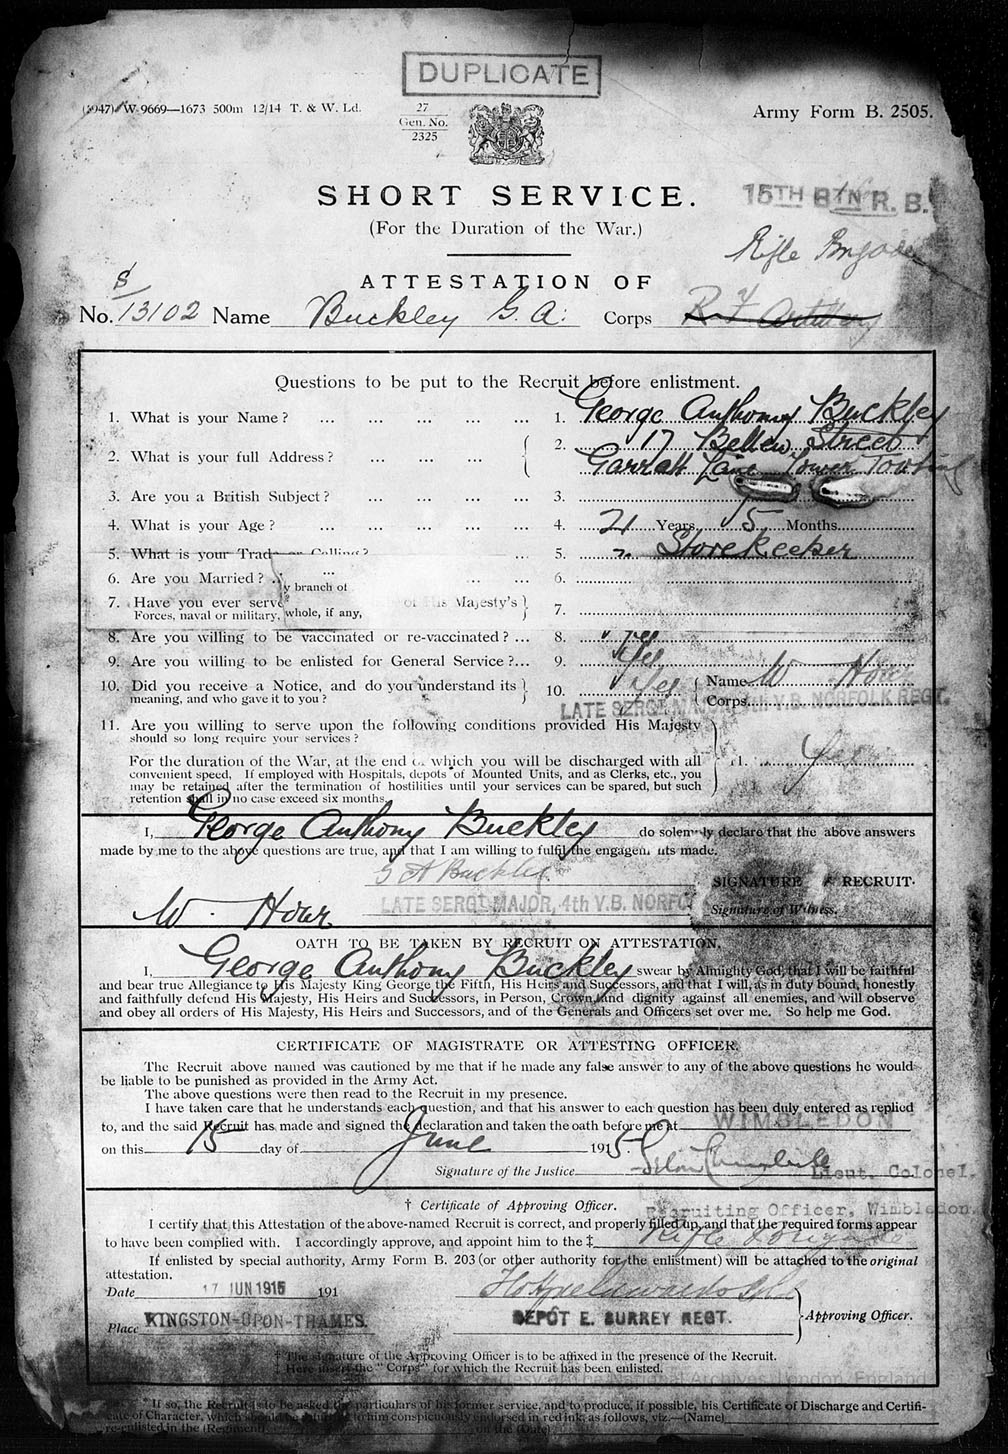 DUPLICATE
(5947) W 9669—1673 500m 12/14 T. & W. Ld.
27
Gen. No.
2325
Army Form B. 2505.
SHORT SERVICE.
15TH BTN R. B.
(For the Duration of the War.)
Rifle Brigade
ATTESTATION OF
S/
No. 13102 Name Buckley G. A. Corps R. F. Artillery
Questions to be put to the Recruit before enlistment.
1. What is your Name? ... ... ... ... ... 1. George Anthony Buckley
2. What is your full Address? ... ... ... 2. 17 Bellew Street
Garratt Lane Lower Tooting
3. Are you a British Subject? ... ... ... ... 3.
4. What is your Age? ... ... ... ... ... 4. 21 Years 5 Months
5. What is your Trade or Calling? ... 5. Storekeeper
6. Are you Married? ... ... ... 6.
y branch of
7. Have you ever serve of His Majesty's 7.
Forces, naval or military, whole, if any,
8. Are you willing to be vaccinated or re-vaccinated? ... 8. Yes
9. Are you willing to be enlisted for General Service? ... 9. Yes
10. Did you receive a Notice, and do you understand its 10. Yes Name W
meaning, and who gave it to you? Corps
LATE SERGT. MAJOR 4th V.B. NORFOLK REGT.
11. Are you willing to serve upon the following conditions provided His Majesty
should so long require your services?
For the duration of the War, at the end of which you will be discharged with all 11. Yes
convenient speed. If employed with Hospitals, depots of Mounted Units, and as Clerks, etc., you
may be retained after the termination of hostilities until your services can be spared, but such
retention shall in no case exceed six months.
I, George Anthony Buckley do solemnly declare that the above answers
made by me to the above questions are true, and that I am willing to fulfil the engagements made.
G A Buckley SIGNATURE OF RECRUIT.
W. LATE SERGT-MAJOR, 4th V.B. NORFO Signature of Witness.
OATH TO BE TAKEN BY RECRUIT ON ATTESTATION.
I, George Anthony Buckley swear by Almighty God, that I will be faithful
and bear true Allegiance to His Majesty King George the Fifth, His Heirs and Successors, and that I will, as in duty bound, honestly
and faithfully defend His Majesty, His Heirs and Successors, in Person, Crown, and dignity against all enemies, and will observe
and obey all orders of His Majesty, His Heirs and Successors, and of the Generals and Officers set over me. So help me God.
CERTIFICATE OF MAGISTRATE OR ATTESTING OFFICER.
The Recruit above named was cautioned by me that if he made any false answer to any of the above questions he would
be liable to be punished as provided in the Army Act.
The above questions were then read to the Recruit in my presence.
I have taken care that he understands each question, and that his answer to each question has been duly entered as replied
to, and the said Recruit has made and signed the declaration and taken the oath before me at WIMBLEDON
on this 15 day of June 1915.
Signature of the Justice Lieut. Colonel.
† Certificate of Approving Officer.
Recruiting Officer, Wimbledon.
I certify that this Attestation of the above-named Recruit is correct, and properly filled up, and that the required forms appear
to have been complied with. I accordingly approve, and appoint him to the ‡ Rifle Brigade
If enlisted by special authority, Army Form B. 203 (or other authority for the enlistment) will be attached to the original
attestation.
Date 17 JUN 1915 191
Place KINGSTON-UPON-THAMES. DEPÔT E. SURREY REGT. Approving Officer.
† The signature of the Approving Officer is to be affixed in the presence of the Recruit.
‡ Here insert the "Corps" for which the Recruit has been enlisted.
National Archives, London, England
* If so, the Recruit is to be asked the particulars of his former service, and to produce, if possible, his Certificate of Discharge and Certifi-
cate of Character, which should be returned to him conspicuously endorsed in red ink, as follows, viz.—(Name)
re-enlisted in the (Regiment) on the (Date)